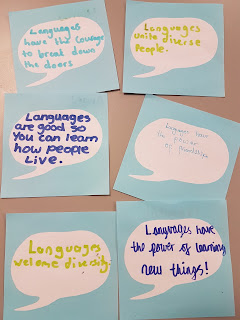 Languages
have the courage
to break down
the doors
Languages
unite diverse
People.
Languages
are good so
You can learn
how people
Live.
Languages have
the power
of friendships
Languages
welcome diversity.
Languages have
the power of learning
new things!